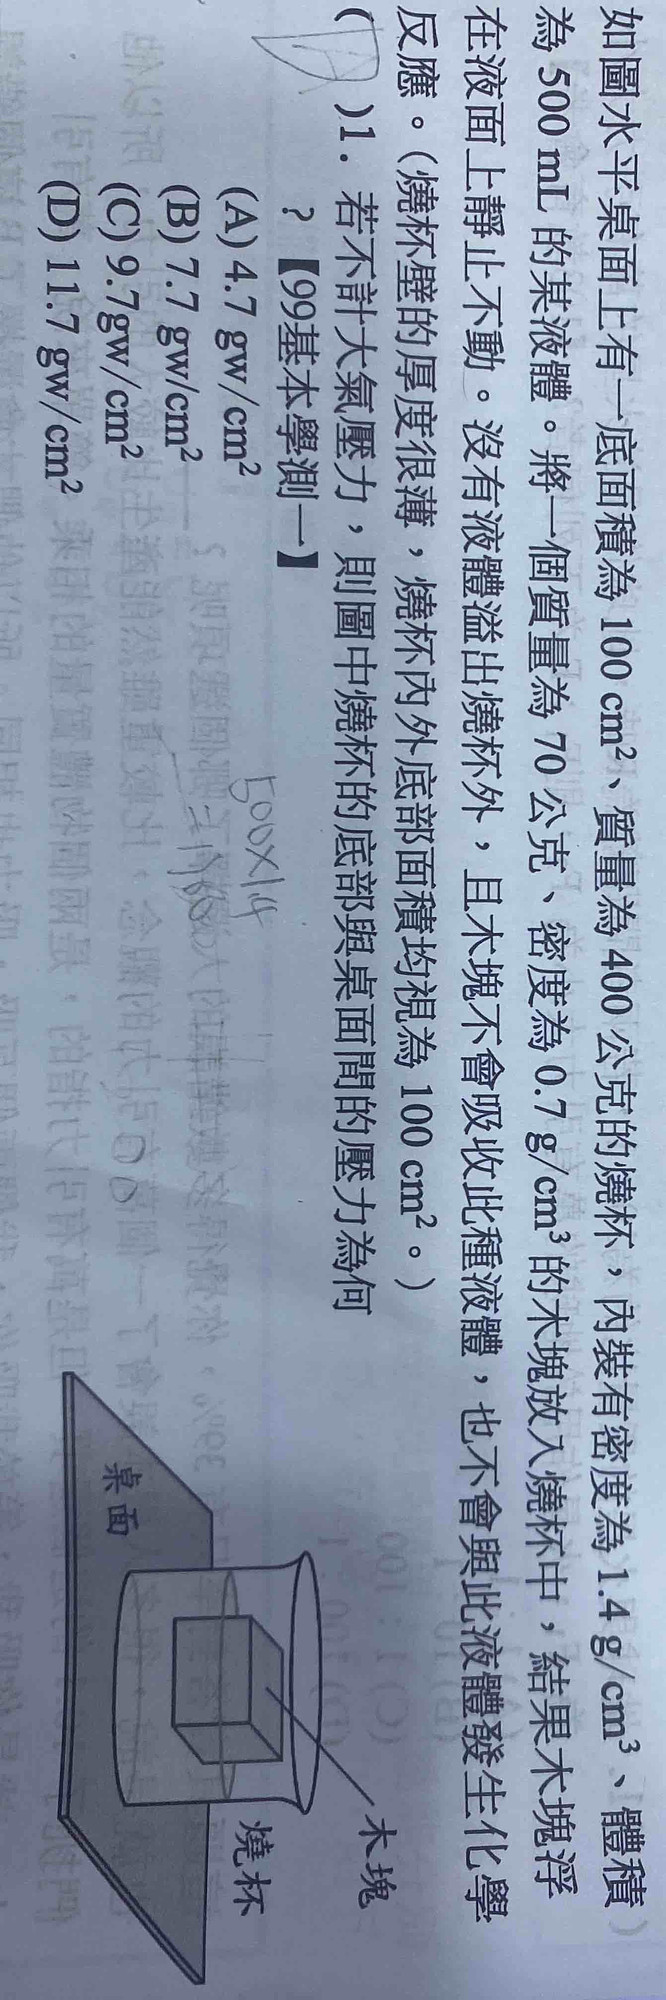 如圖水平桌面上有一底面積為 100 cm²、質量為 400 公克的燒杯，內裝有密度為 1.4 g/cm³、體積
為 500 mL 的某液體。將一個質量為 70 公克、密度為 0.7 g/cm³ 的木塊放入燒杯中，結果木塊浮
在液面上靜止不動。沒有液體溢出燒杯外，且木塊不會吸收此種液體，也不會與此液體發生化學
反應。(燒杯壁的厚度很薄，燒杯內外底部面積均視為 100 cm²。)
( D )1. 若不計大氣壓力，則圖中燒杯的底部與桌面間的壓力為何
?【99基本學測一】
(A) 4.7 gw/cm²
(B) 7.7 gw/cm²
(C) 9.7gw/cm²
(D) 11.7 gw/cm²
500×1.4
木塊
燒杯
桌面